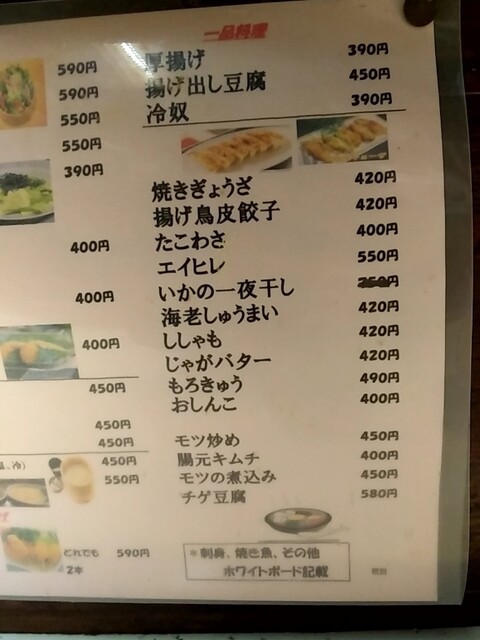 一品料理
590円
590円
550円
550円
390円
400円
400円
400円
450円
450円
450円
、冷)
450円
550円
どれでも 590円
2本
厚揚げ 390円
揚げ出し豆腐 450円
冷奴 390円
焼きぎょうざ 420円
揚げ鳥皮餃子 420円
たこわさ 400円
エイヒレ 550円
いかの一夜干し 円
海老しゅうまい 420円
ししゃも 420円
じゃがバター 420円
もろきゅう 490円
おしんこ 400円
モツ炒め 450円
腸元キムチ 400円
モツの煮込み 450円
チゲ豆腐 580円
*刺身、焼き魚、その他
ホワイトボード記載
税別